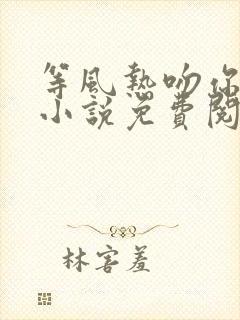 等風熱吻你
小說免費閱
林害羞